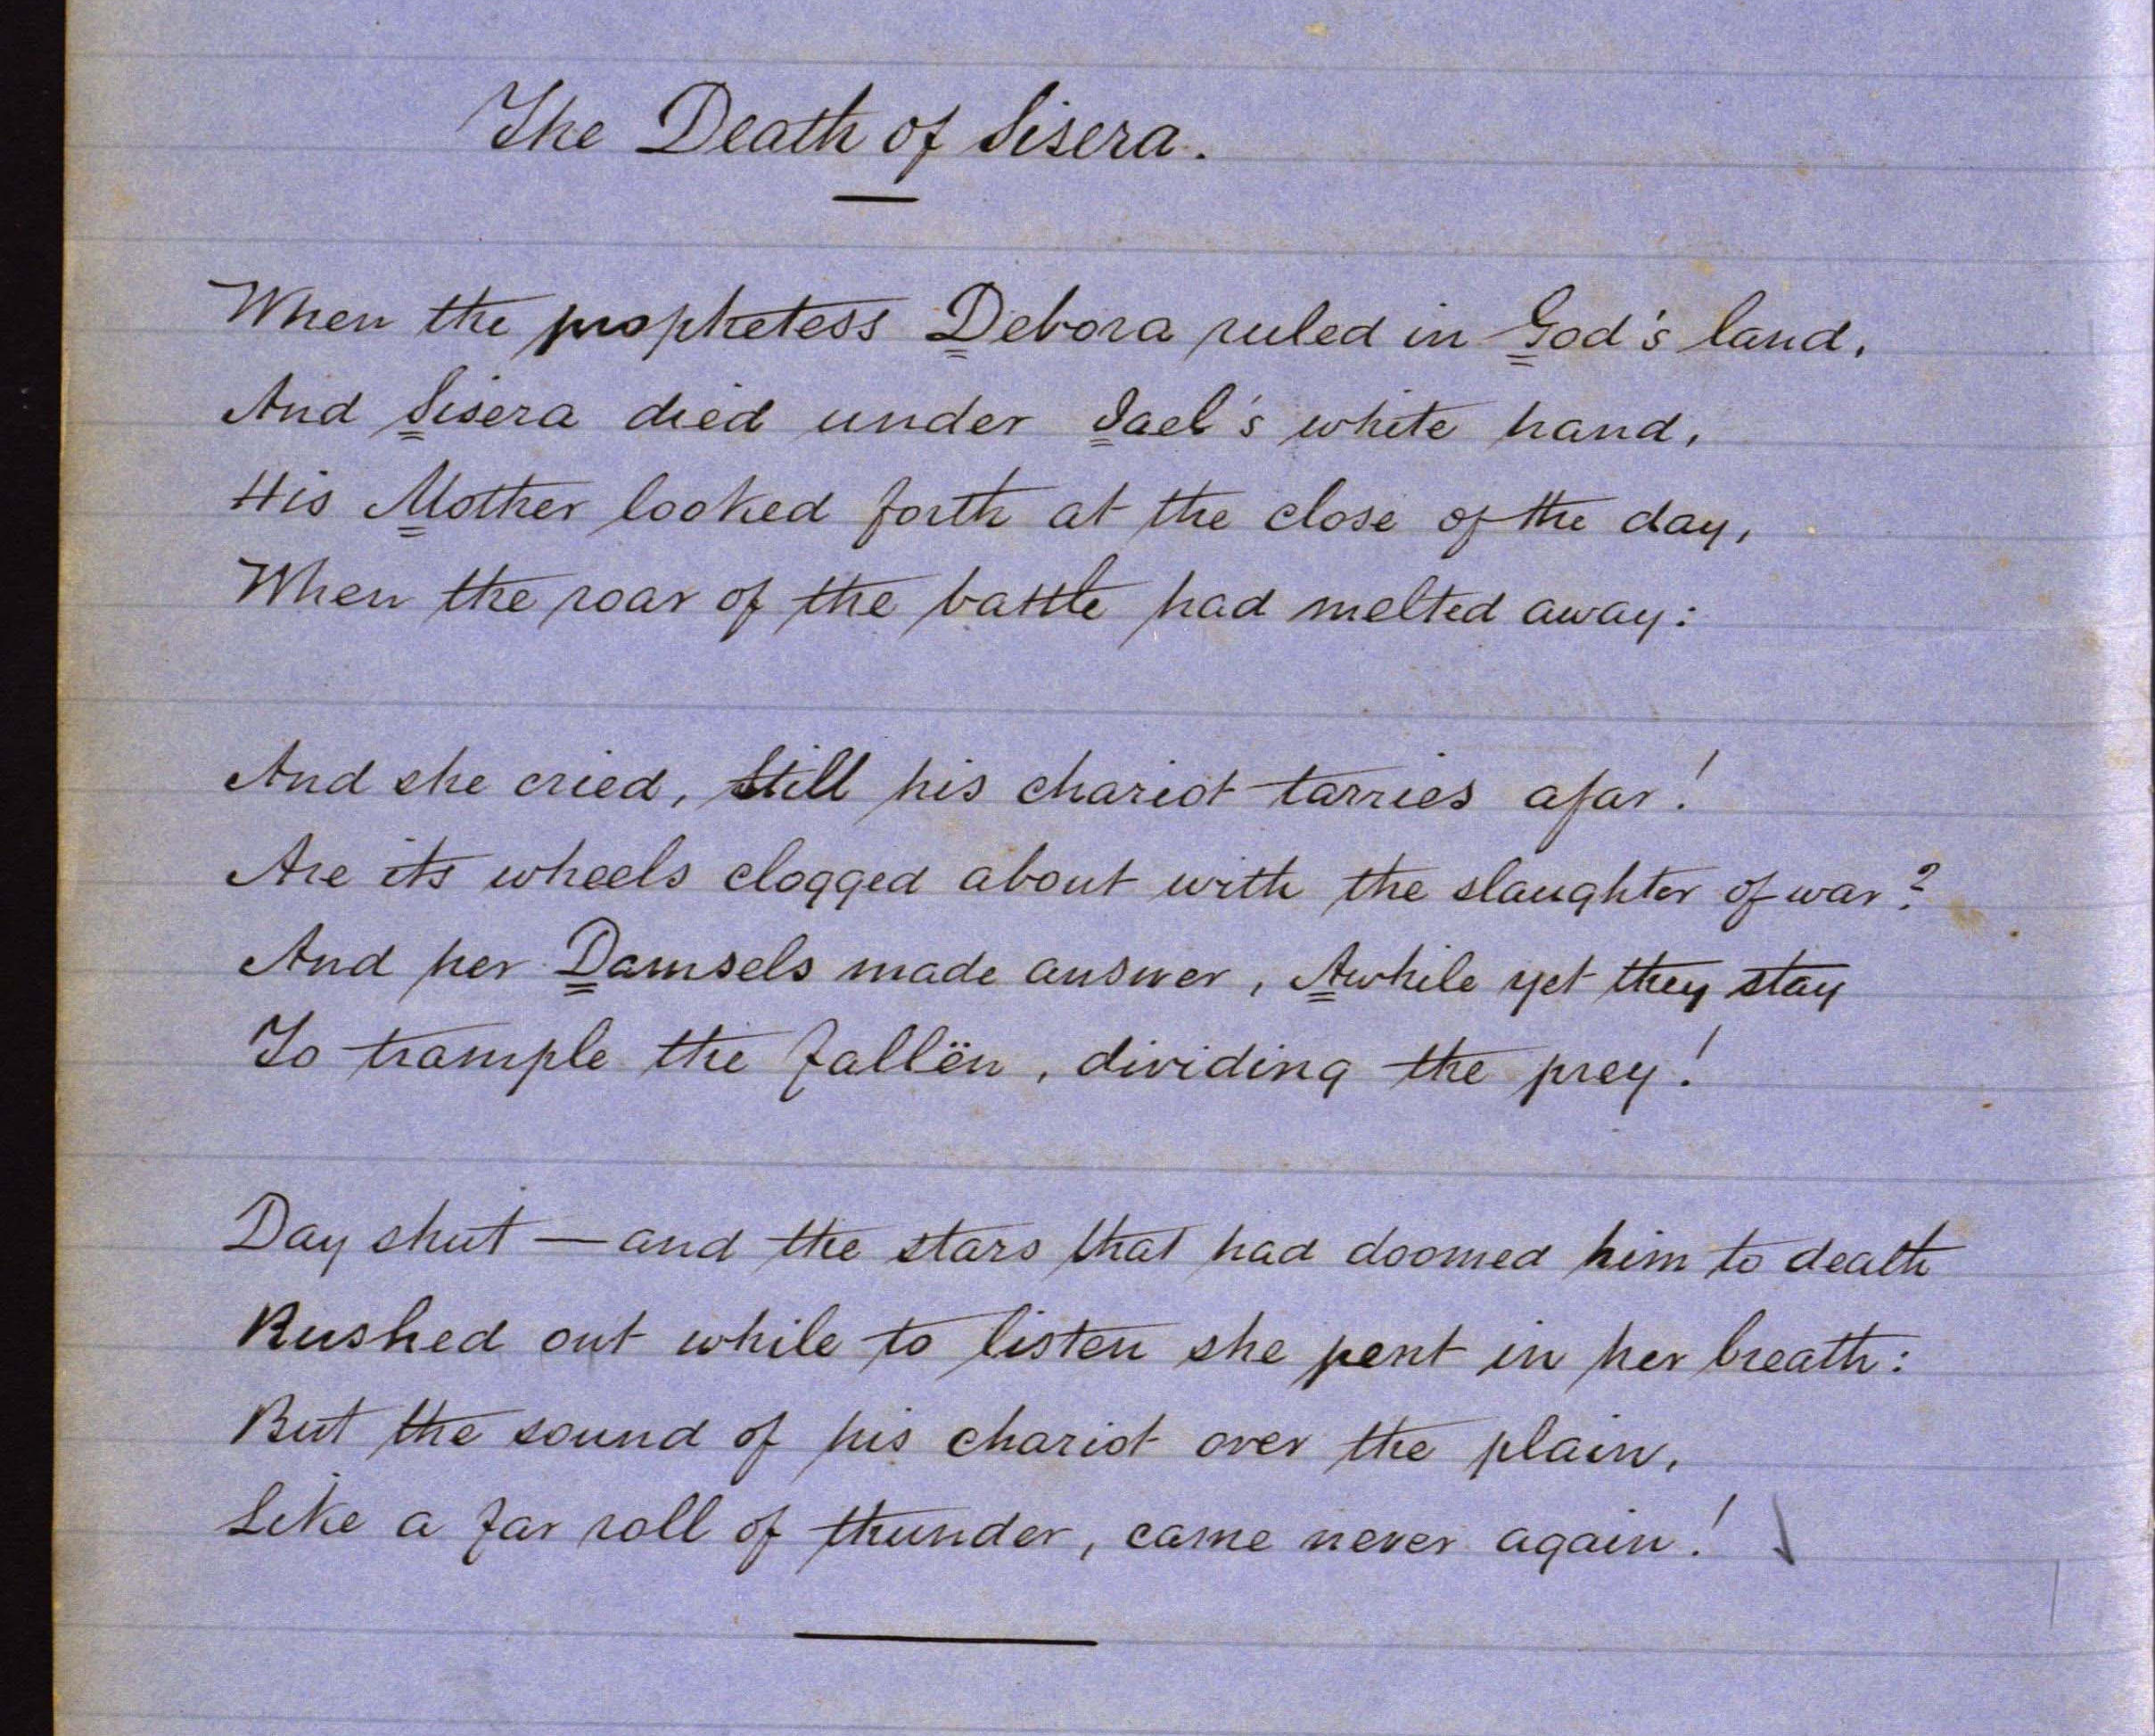 The Death of Sisera.
When the prophetess Debora ruled in God's land,
And Sisera died under Jael's white hand,
His Mother looked forth at the close of the day,
When the roar of the battle had melted away:
And she cried, Still his chariot tarries afar!
Are its wheels clogged about with the slaughter of war?
And her Damsels made answer, Awhile yet they stay
To trample the fallën, dividing the prey!
Day shut — and the stars that had doomed him to death
Rushed out while to listen she pent in her breath:
But the sound of his chariot over the plain,
Like a far roll of thunder, came never again!